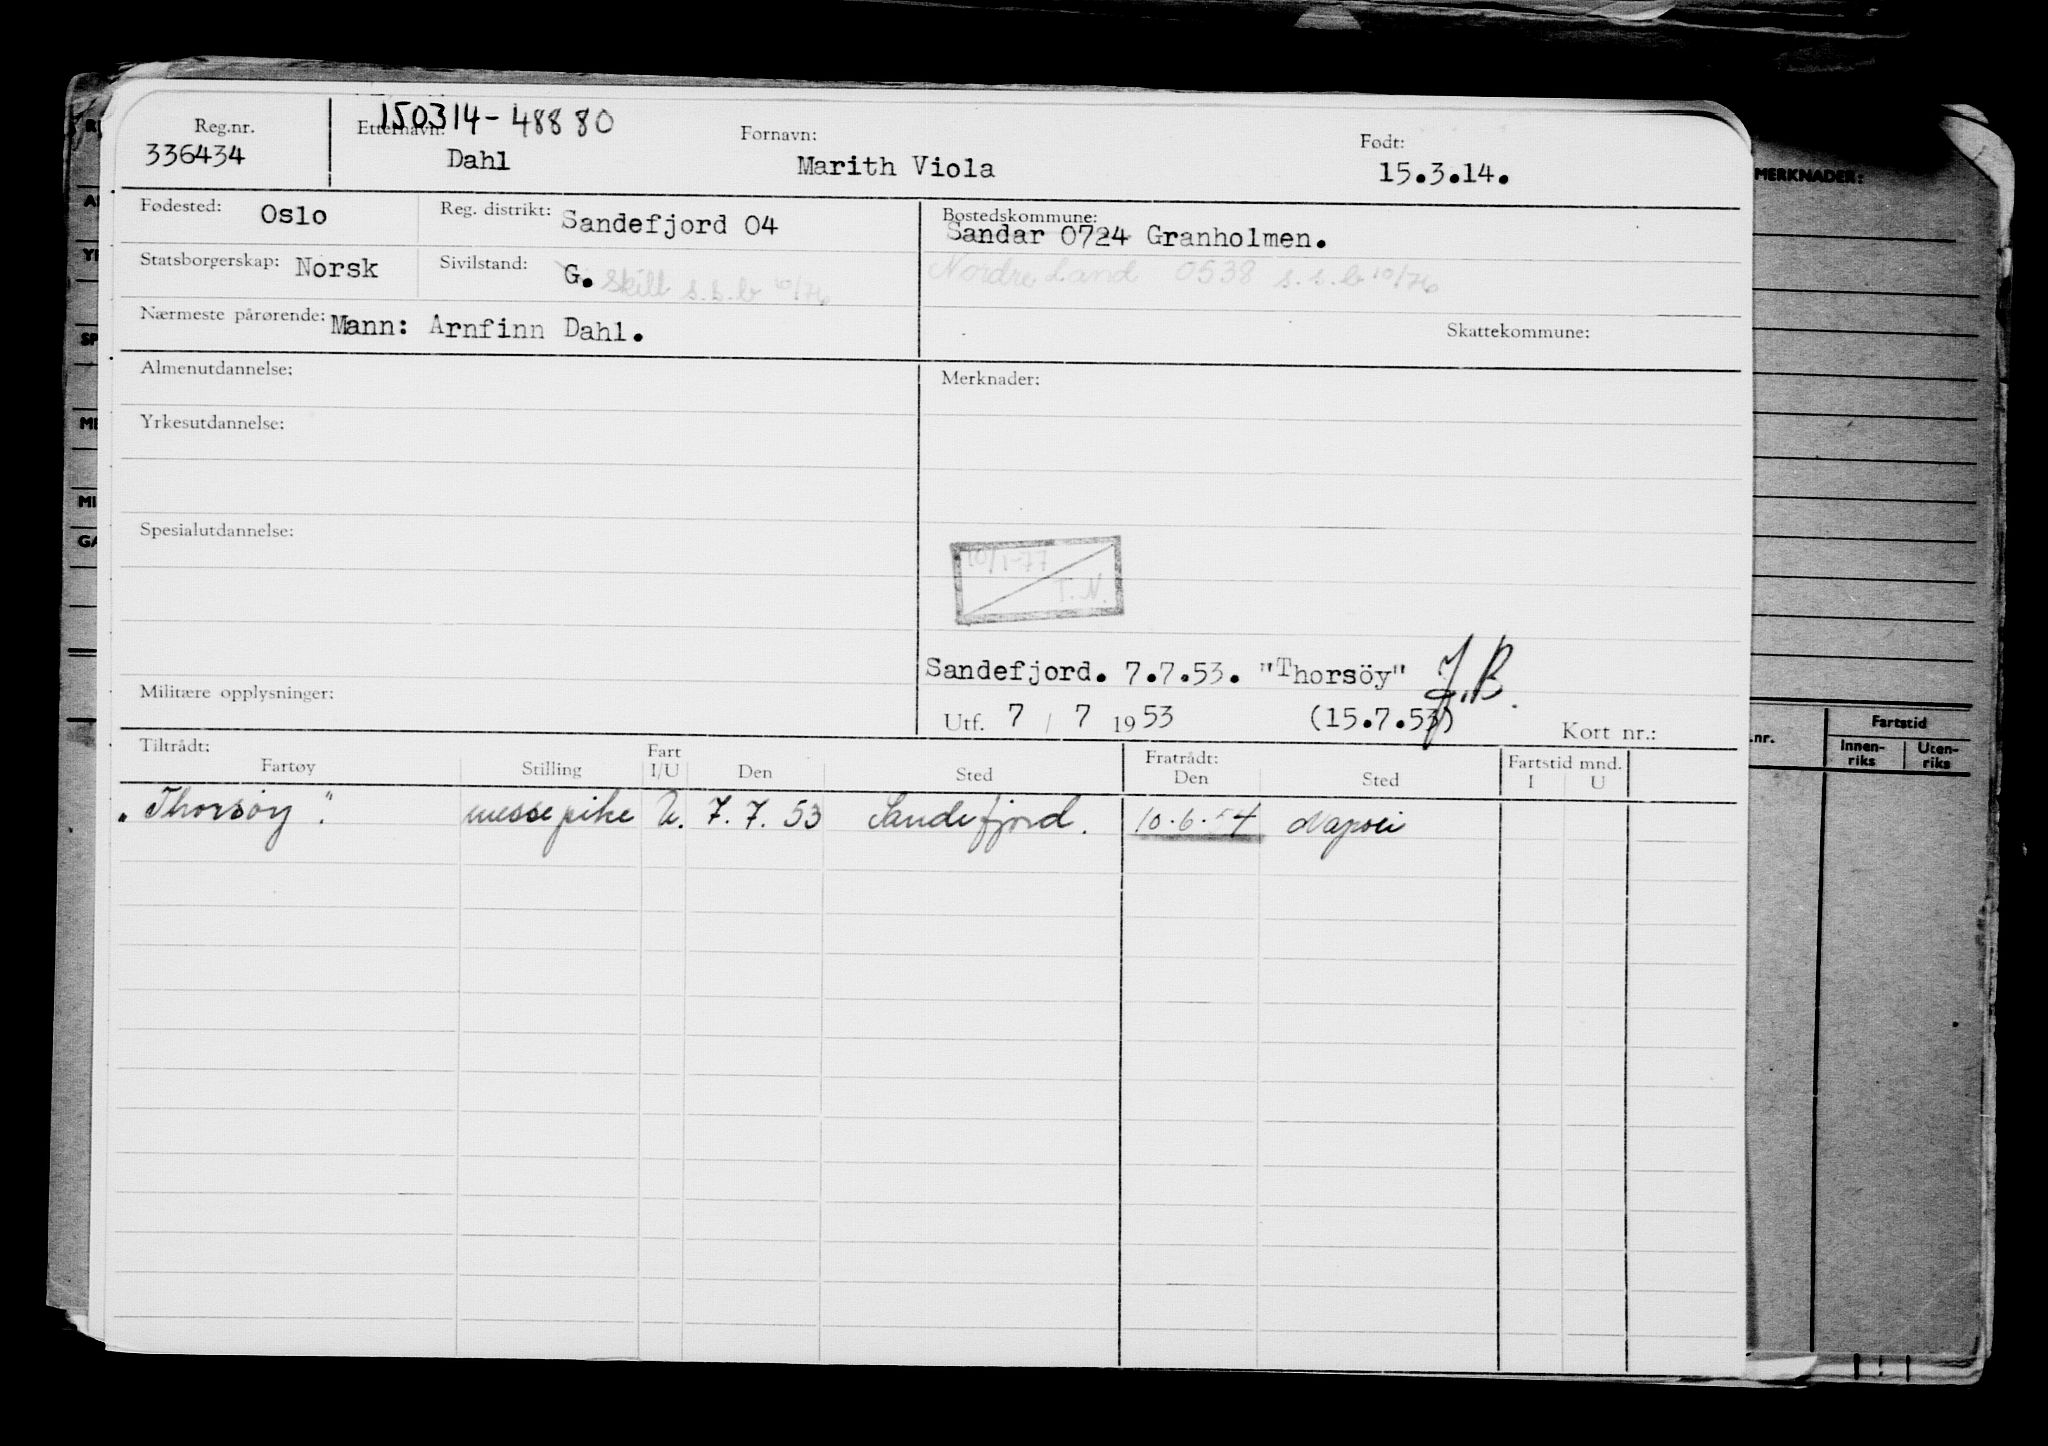 150314-48880
Reg.nr. Etternavn: Fornavn: Født:
336434 Dahl Marith Viola 15.3.14.
Fødested: Oslo Reg. distrikt: Sandefjord 04
Bostedskommune:
Sandar 0724 Granholmen.
Statsborgerskap: Norsk Sivilstand: G. Skilt s.s.b 10/76
Nordre Land 0538 s.s.b 10/76
Nærmeste pårørende: Mann: Arnfinn Dahl.
Skattekommune:
Almenutdannelse:
Merknader:
Yrkesutdannelse:
Spesialutdannelse:
10/1-77
T.N.
Sandefjord. 7.7.53. "Thorsöy" J.B.
Militære opplysninger:
Utf. 7 / 7 1953 (15.7.53) Kort nr.:
Tiltrådt: Fart Fratrådt: Fartstid mnd.
Fartøy Stilling I/U Den Sted Den Sted I U
"Thorsøy". messepike U. 7.7.53 Sandefjord. 10.6.54
MERKNADER:
.nr. Fartstid
Innen-riks Uten-riks